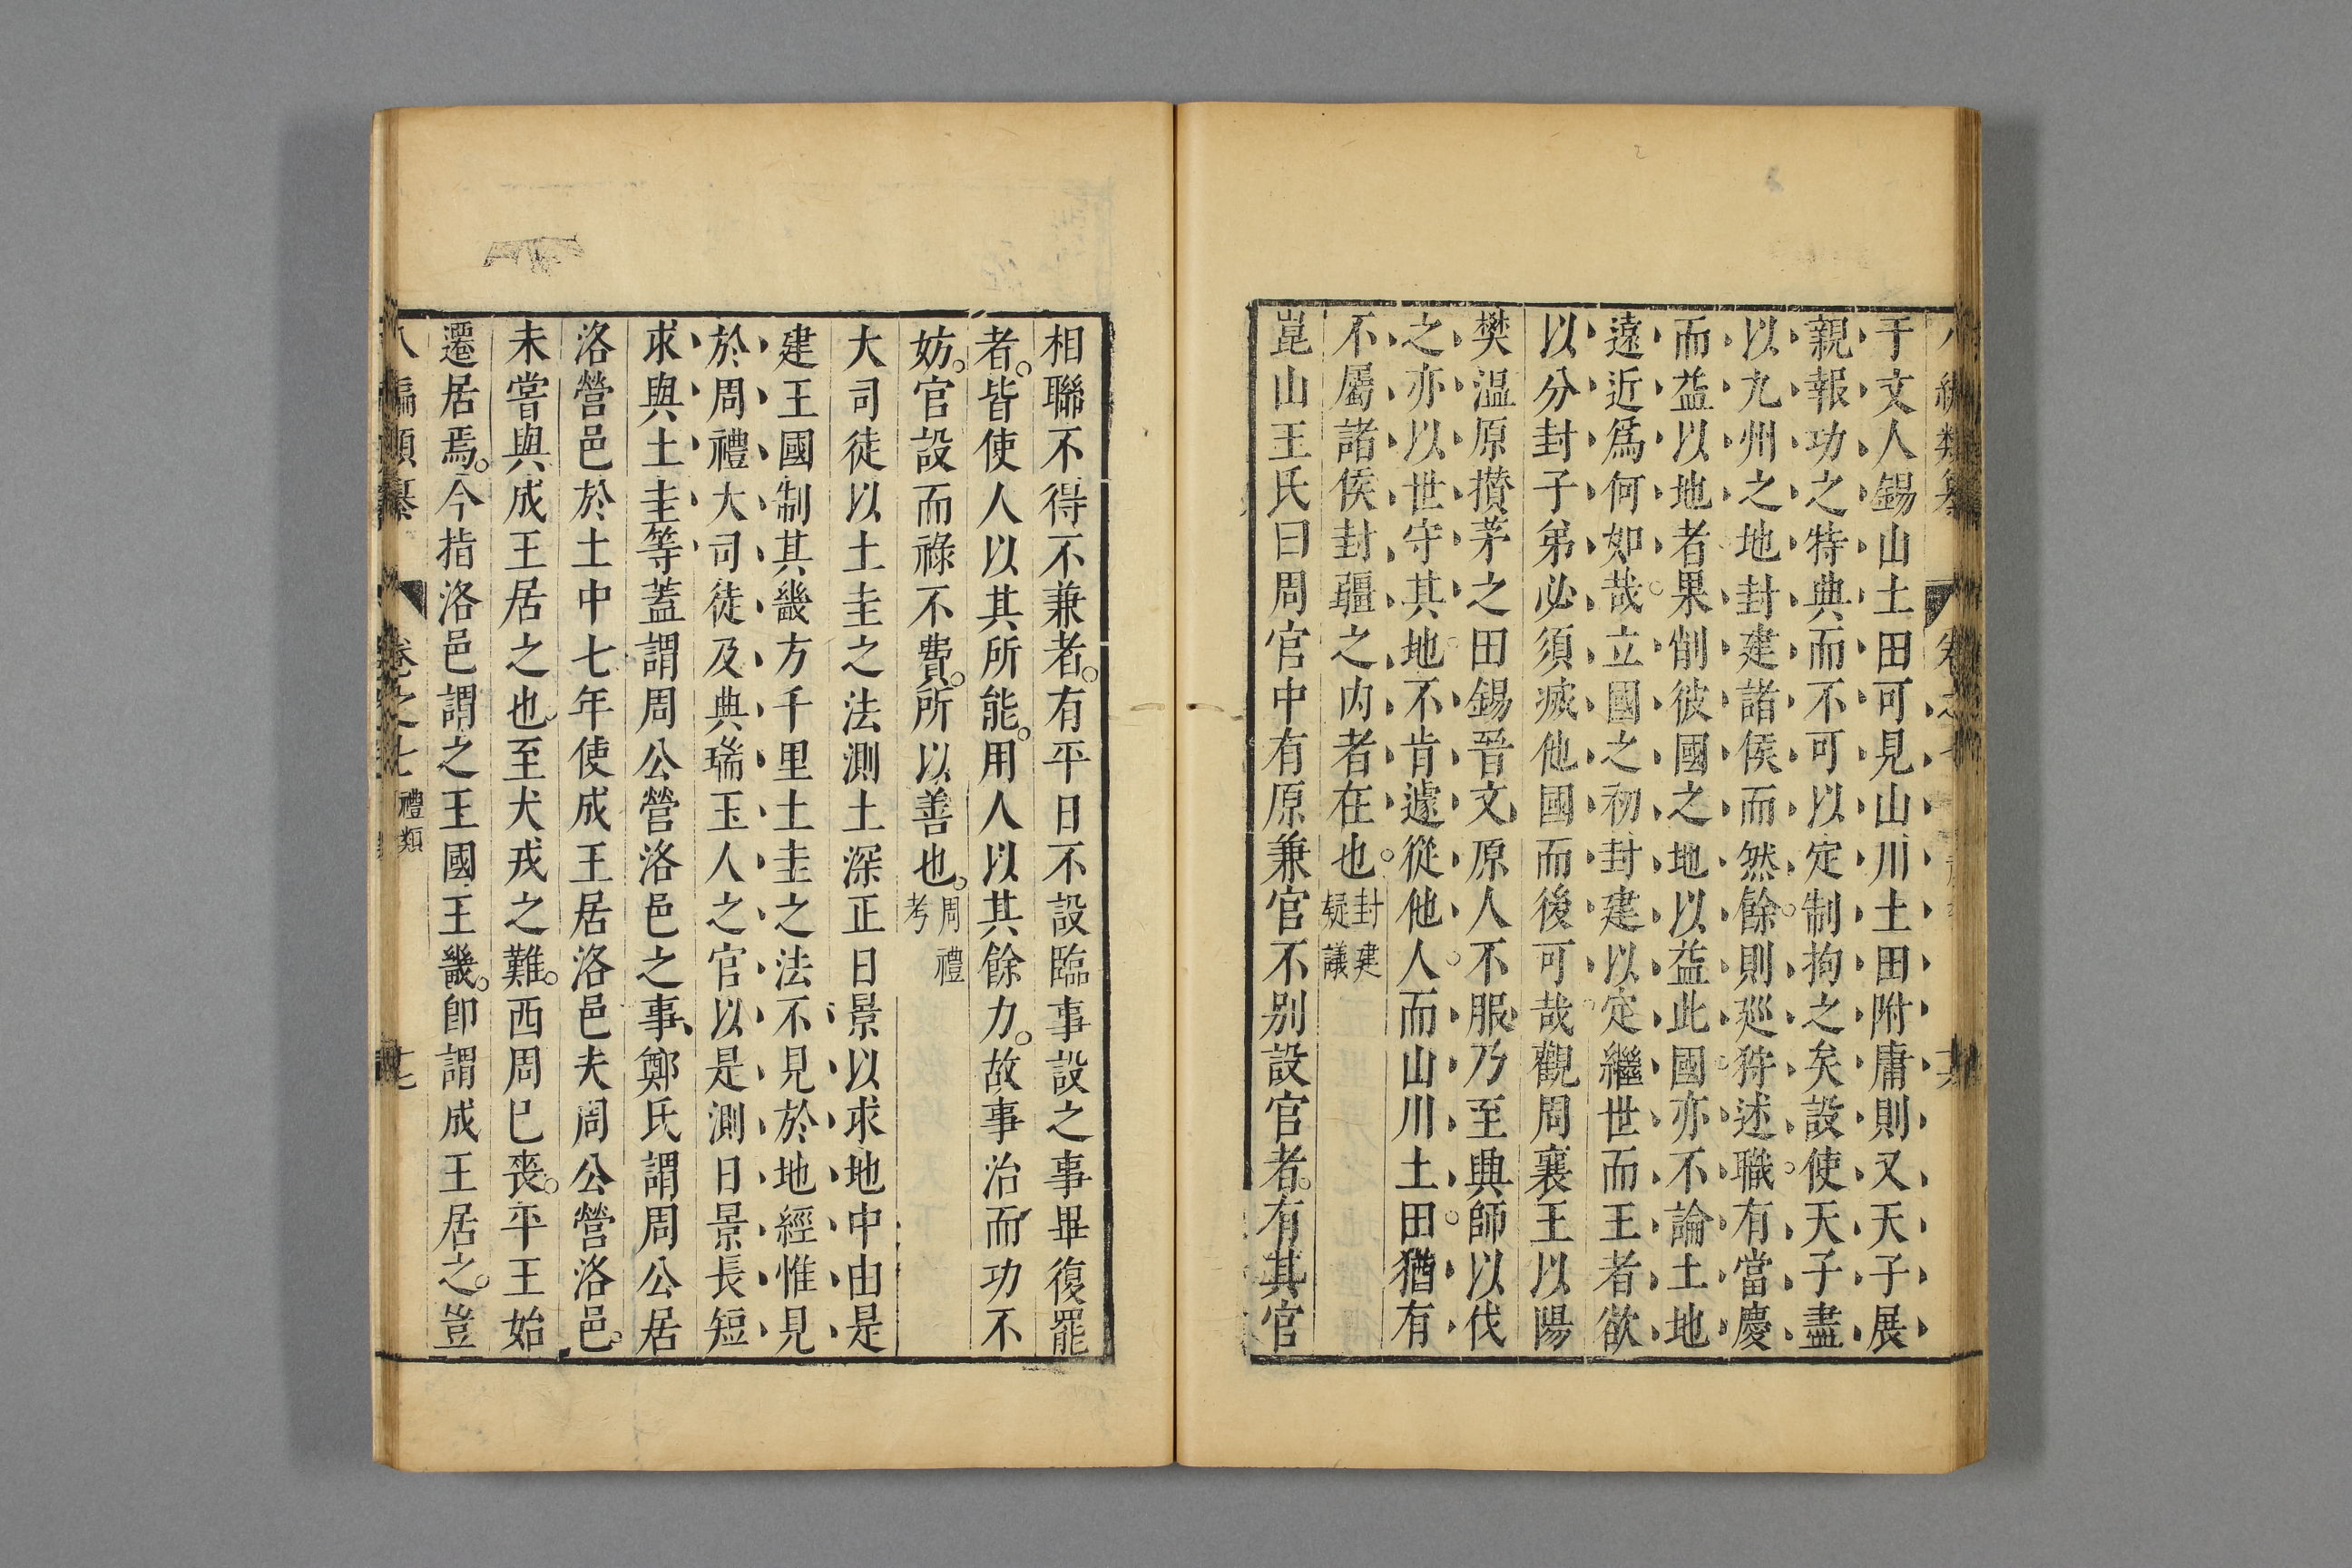 于文人錫山土田可見山川土田附庸則又天子展
親報功之特典而不可以定制拘之矣設使天子盡
以九州之地封建諸侯而然餘則廵狩述職有當慶
而益以地者果削彼國之地以益此國亦不論土地
遠近爲何如哉立國之初封建以定繼世而王者欲
以分封子弟必須瘢他國而後可哉觀周襄王以陽
樊温原攅茅之田錫晉文原人不服乃至典師以伐
之亦以世守其地不肯遽從他人而山川土田猶有
不屬諸侯封疆之内者在也封建疑議
崑山王氏曰周官中有原兼官不别設官者有其官
相聯不得不兼者有平日不設臨事設之事畢復罷
者皆使人以其所能用人以其餘力故事治而功不
妨官設而祿不費所以善也周禮考
大司徒以土圭之法測土深正日景以求地中由是
建王國制其畿方千里土圭之法不見於地經惟見
於周禮大司徒及典瑞玉人之官以是測日景長短
求與土圭等蓋謂周公營洛邑之事鄭氏謂周公居
洛營邑於土中七年使成王居洛邑夫周公營洛邑
未嘗與成王居之也至犬戎之難西周已喪平王始
遷居焉今指洛邑謂之王國王畿卽謂成王居之豈
八編類纂 卷之七 禮類 十七